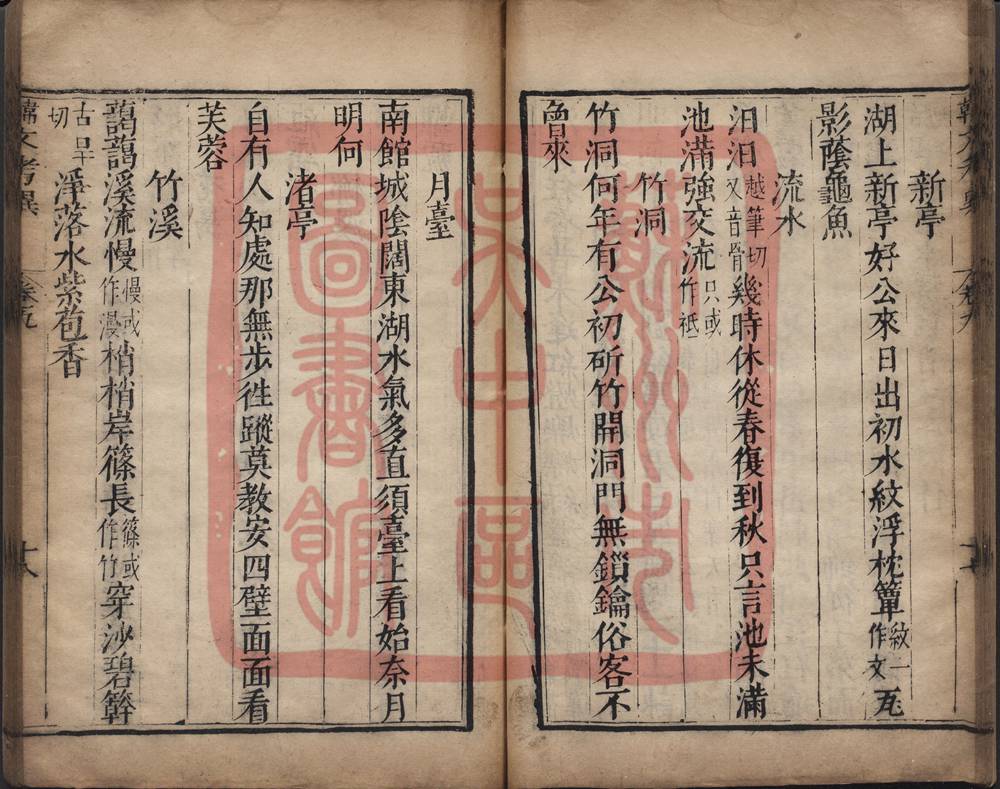 新亭
湖上新亭好公來日出初水紋浮枕簟紋一作文瓦
影蔭龜魚
流水
汨汨越筆切又音骨幾時休從春復到秋只言池未滿
池滿強交流只或作祗
竹洞
竹洞何年有公初斫竹開洞門無鎖鑰俗客不
曾來
月臺
南館城陰闊東湖水氣多直須臺上看始奈月
明何
渚亭
自有人知處那無步徃蹤莫教安四壁面面看
芙蓉
竹溪
藹藹溪流慢慢或作漫梢梢岸篠長篠或作竹穿沙碧簳
古旱切淨落水紫苞香
韓文考異
十八
蘇州市
吳中區
圖書館